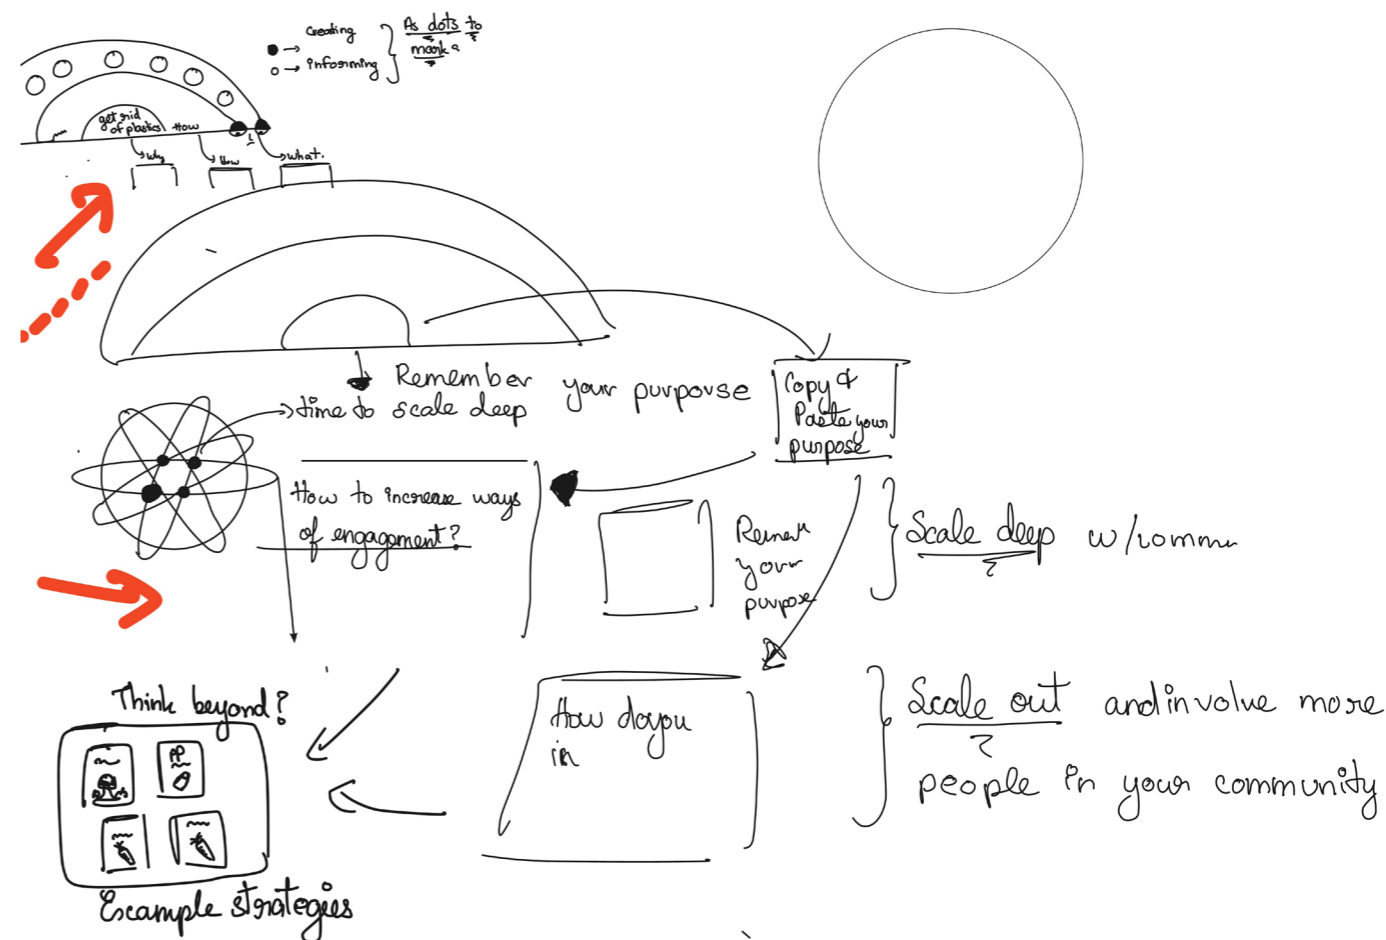 Creating
informing
As dots to
mark
get rid
of plastics
How
Why
How
What.
Remember your purporse
time to scale deep
Copy &
Paste your
purpose
How to increase ways
of engagement?
your
purpose
Scale deep w/commu
?
Think beyond?
How do you
in
Scale out and involve more
?
people in your community
PP
Example strategies